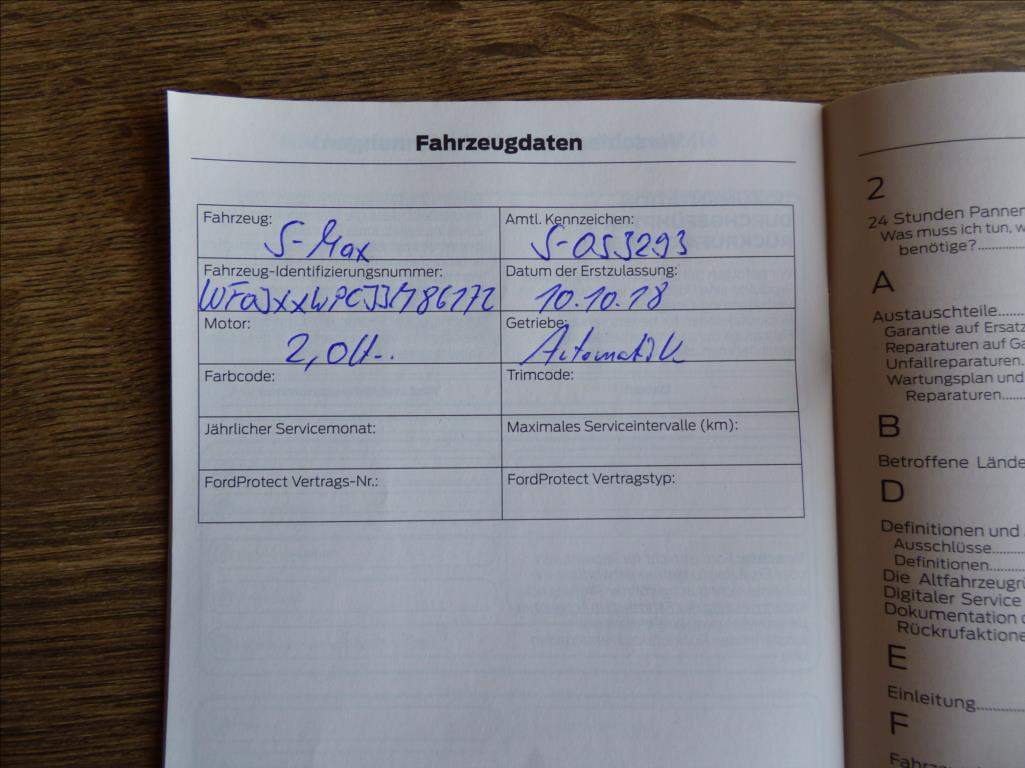 Fahrzeugdaten
Fahrzeug:
S-Max
Amtl. Kennzeichen:
S-OS3293
Fahrzeug-Identifizierungsnummer:
Datum der Erstzulassung:
10.10.18
Motor:
Getriebe:
Automatik
Farbcode:
Trimcode:
Jährlicher Servicemonat:
Maximales Serviceintervalle (km):
FordProtect Vertrags-Nr.:
FordProtect Vertragstyp:
2
24 Stunden Panner
Was muss ich tun, w
benötige?
A
Austauschteile
Garantie auf Ersatz
Reparaturen auf Ga
Unfallreparaturen
Wartungsplan und
Reparaturen
B
Betroffene Lände
D
Definitionen und
Ausschlüsse
Definitionen
Die Altfahrzeugr
Digitaler Service
Dokumentation
Rückrufaktione
E
Einleitung
F